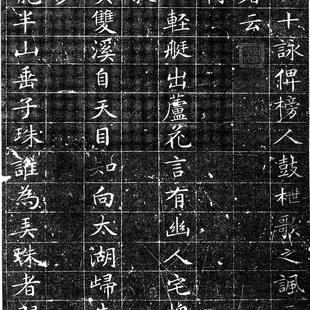 十詠俾榜人鼓枻歌之諷
云
輕艇出蘆花言有幽人宅
雙溪自天目向太湖歸
半山垂子珠誰為弄珠者